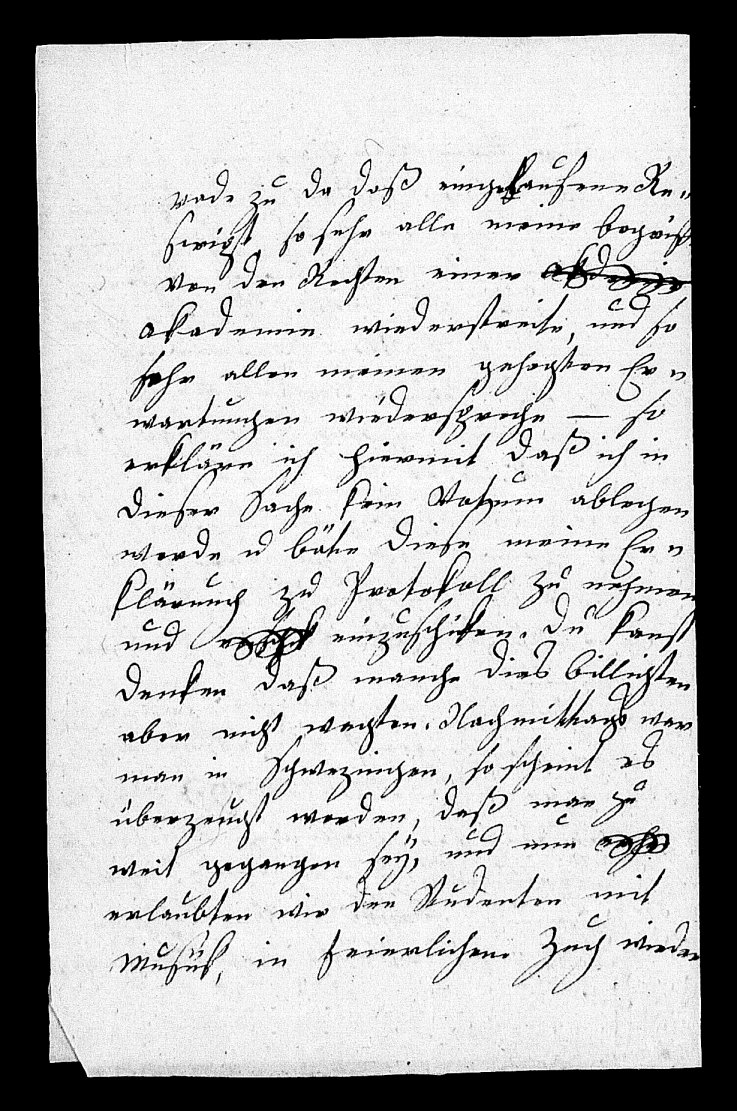 rade zu da daß eingelaufene Re-
script so sehr alle meine begriffe
von den Rechten einer
akademie wiederstreite, und so
sehr allen meinen gehegten Er-
wartungen wiederspreche — so
erkläre ich hiermit daß ich in
dieser Sache kein Votum ablegen
werde u bäte diese meine Er-
klärung zu Protokoll zu nehmen
und einzuschiken. Du kanst
denken daß manche dies billigten
aber nicht wagten. Nachmittags war
man in Schwezingen, so scheint es
überzeugt worden, daß man zu
weit gegangen sey, und nun
erlaubten wir den Studenten mit
Musik, in feierlichem Zug wieder